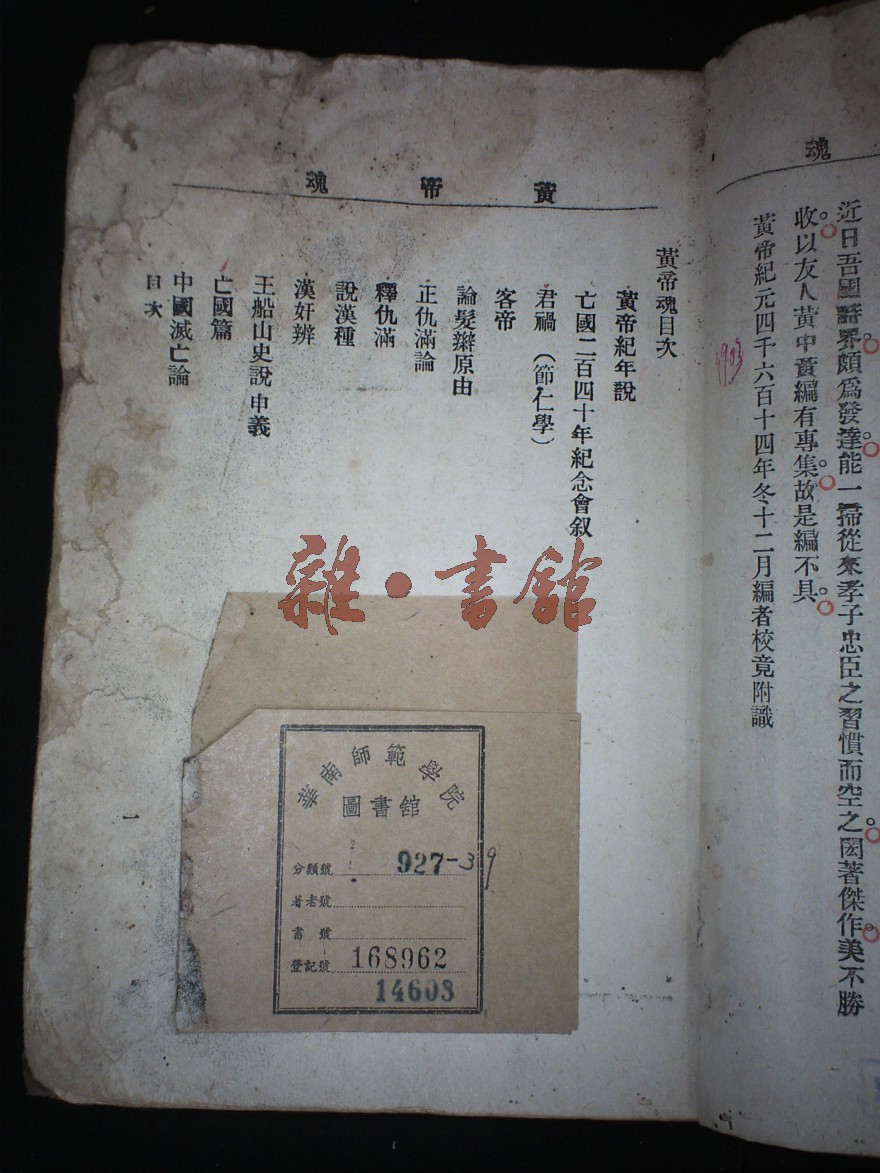 魂
近日吾國詩界頗爲發達能一掃從來孝子忠臣之習慣而空之閎著傑作美不勝
收以友人黃中黃編有專集故是編不具
黃帝紀元四千六百十四年冬十二月編者校竟附識
1903
黃帝魂
黃帝魂目次
黃帝紀年說
亡國二百四十年紀念會叙
君禍（節仁學）
客帝
論髮辮原由
正仇滿論
釋仇滿
說漢種
漢奸辨
王船山史說申義
亡國篇
中國滅亡論
目次
一
雜·書館
華南師範學院
圖書館
分類號 927-39
著者號
書號
登記號 168962
14603